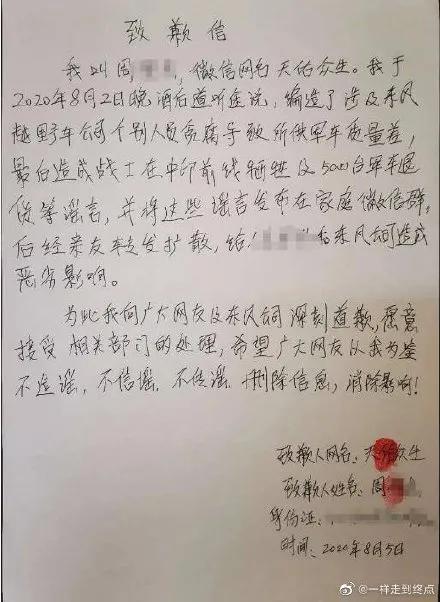 致歉信
我叫周，微信网名天佑众生。我于
2020年8月2日晚酒后道听途说，编造了涉及东风
越野车公司个别人员贪腐导致所供军车质量差，
最后造成战士在中印前线牺牲及5000台军车退
货等谣言，并将这些谣言发布在家庭微信群，
后经亲友转发扩散，给 东风公司造成
恶劣影响。
为此我向广大网友及东风公司深刻道歉，愿意
接受相关部门的处理，希望广大网友以我为鉴
不造谣，不信谣，不传谣，删除信息，消除影响！
致歉人网名：天佑众生
致歉人姓名：周
身份证：
时间：2020年8月5日
@一样走到终点